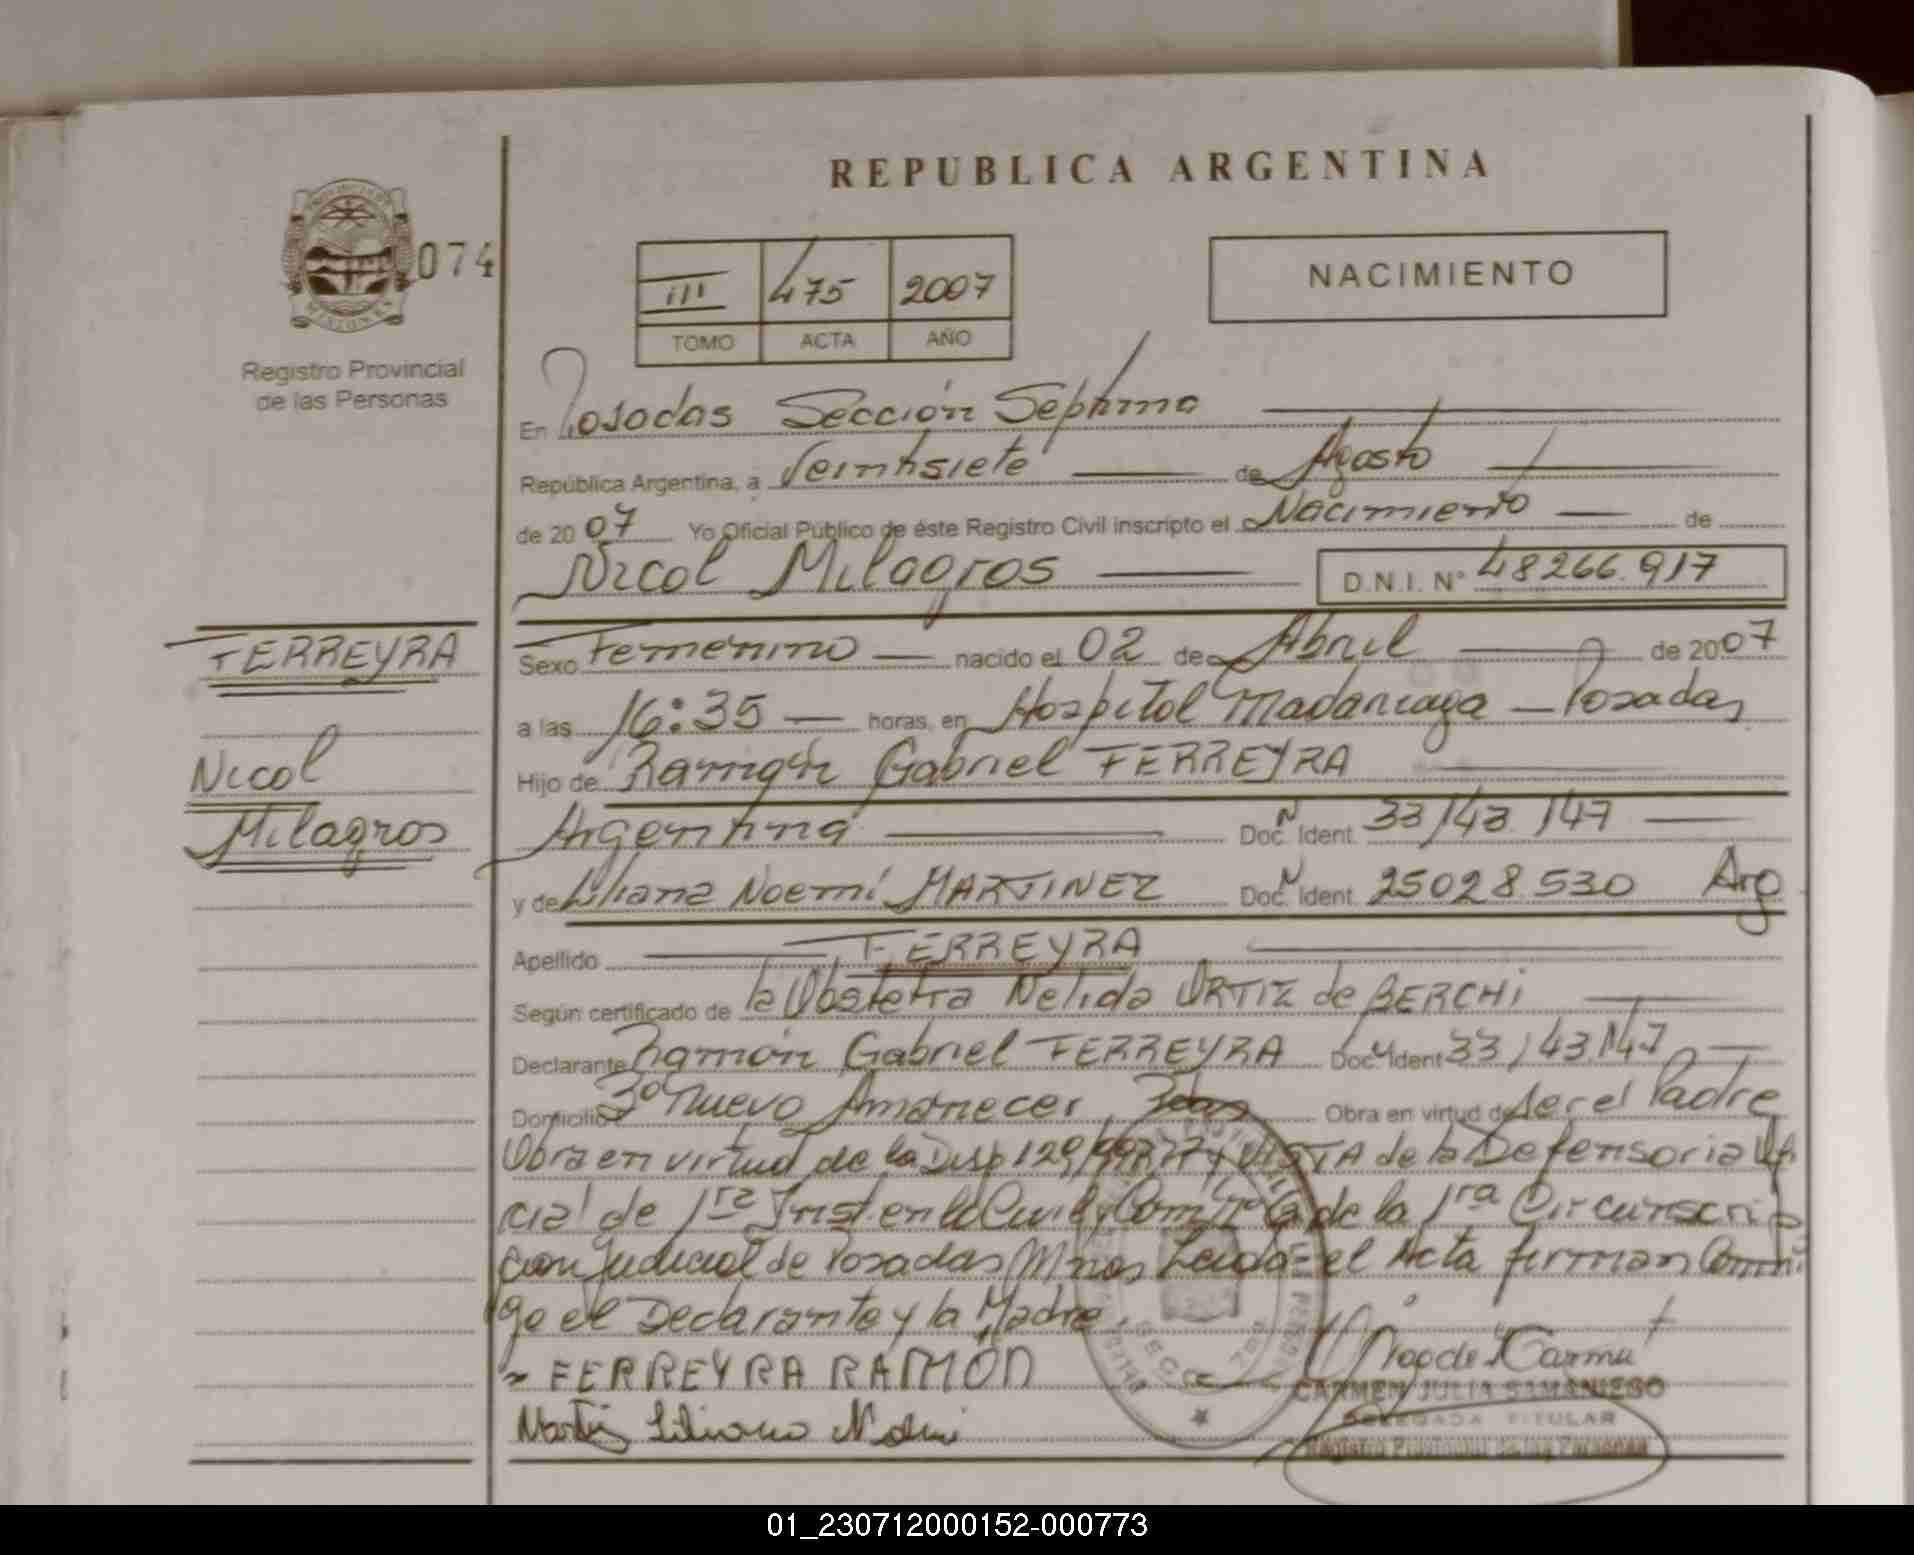 REPUBLICA ARGENTINA
PROVINCIA DE
MISIONES
074
Registro Provincial
de las Personas
III 475 2007
TOMO ACTA AÑO
NACIMIENTO
En Posadas Sección Séptima
República Argentina, a Veintisiete de Agosto
de 2007 Yo Oficial Público de éste Registro Civil inscripto el Nacimiento de
Nicol Milagros D.N.I. N° 48266.917
FERREYRA
Nicol
Milagros
Sexo Femenino nacido el 02 de Abril de 2007
a las 16:35 horas, en Hospital Madariaga - Posadas
Hijo de Ramón Gabriel FERREYRA
Argentina Doc. N Ident. 33143.147
y de Liliana Noemí MARTINEZ Doc. N Ident. 25028.530 Arg
Apellido FERREYRA
Según certificado de la Obstetra Nelida ORTIZ de BERCHI
Declarante Ramón Gabriel FERREYRA Doc. Ident 33143.147
Domicilio 3° Nuevo Amanecer, Pdas Obra en virtud de ser el Padre
Obra en virtud de la Disp 129/99 y VISTA de la Defensoria Ofi
cial de 1ra Inst. en lo Civil y Com de la 1ra Circunscrip
cion Judicial de Posadas Mnes Leida el Acta firman Conmi
go el Declarante y la Madre
FERREYRA RAMÓN
Martinez Liliana Noemi
CARMEN JULIA SAMANIEGO
DELEGADA TITULAR
Registro Provincial de las Personas
01_230712000152-000773